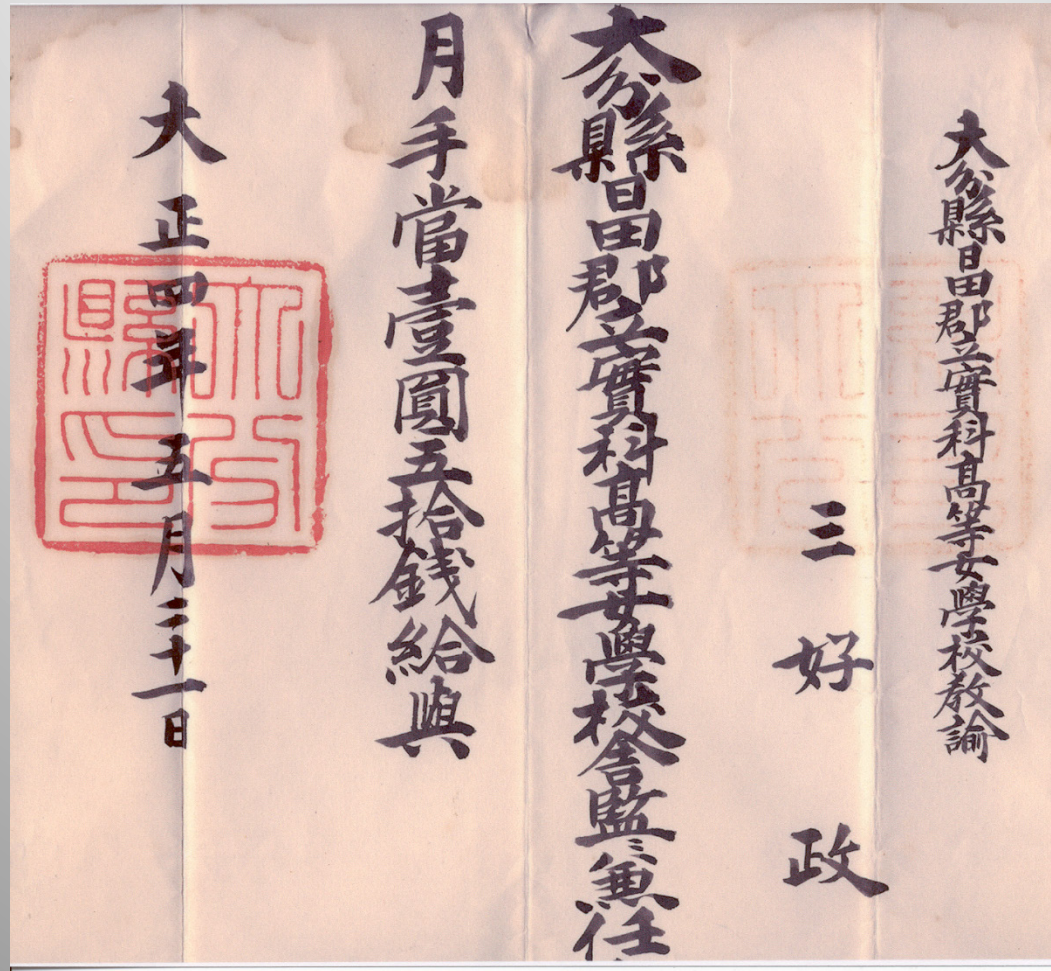 大分縣日田郡立實科髙等女學校教諭
三好政
大分縣日田郡立實科髙等女學校舎監ニ兼任
月手當壹圓五拾錢給與
大正四年五月三十一日
大分縣印